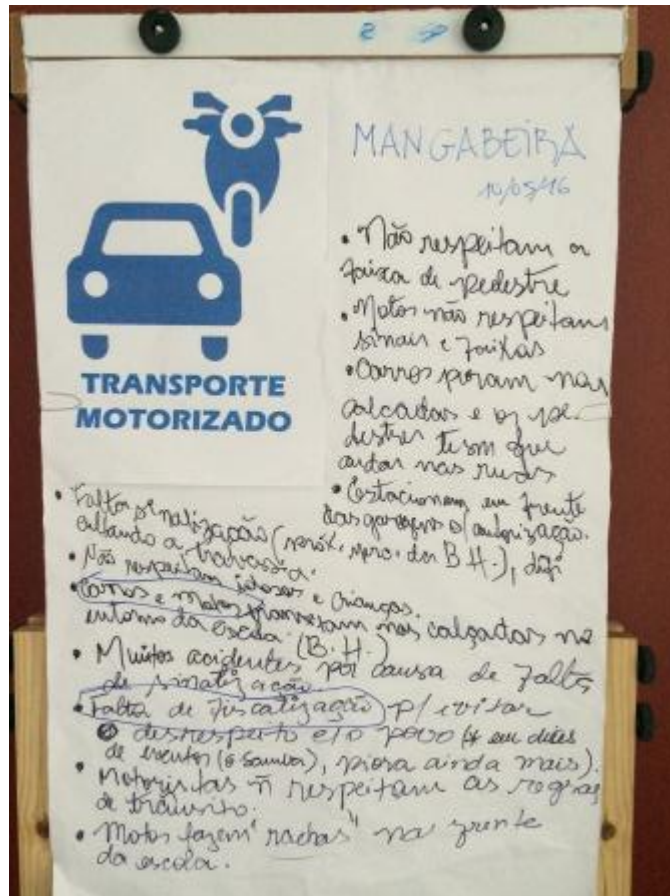 MANGABEIRA
10/05/16
TRANSPORTE
MOTORIZADO
• Não respeitam a
faixa de pedestre
• Motos não respeitam
sinais e faixas
• Carros param nas
calcadas e os pe-
destres tem que
andar nas ruas
• Estacionam em frente
das garagens s/ autorização.
• Falta sinalização (próx. merc. dos B.H.), difi
cultando a travessia.
• Não respeitam idosos e crianças.
• Carros e motos transitam nas calçadas no
entorno da escola. (B.H.)
• Muitos acidentes por causa de falta
de sinalização
• Falta de fiscalização p/ evitar
desrespeito c/ o povo (* em dias
de eventos (e samba), piora ainda mais).
• Motoristas ñ respeitam as regras
de trânsito.
• Motos fazem "rachas" na frente
da escola.